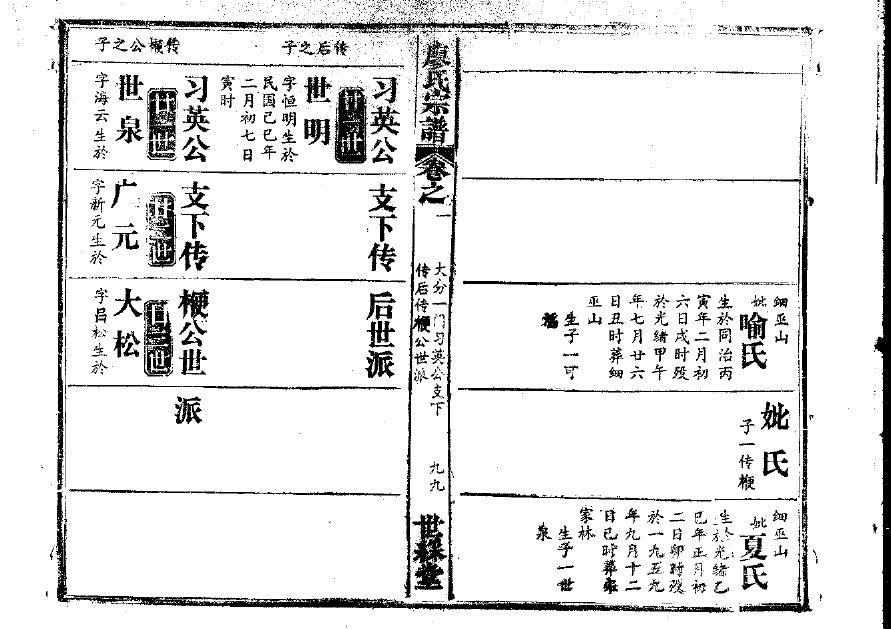 細巫山
妣喻氏
生於同治丙
寅年二月初
六日戌时殁
於光緒甲午
年七月廿六
日丑时葬細
巫山
生子一可
妣氏
子一传楩
細巫山
妣夏氏
生於光緒乙
巳年正月初
二日卯时殁
於一九五九
年九月十二
日巳时葬
家林
生子一世
泉
廖氏宗譜
卷之一
大分一门习英公支下
传后传楩公世派
九九
世綵堂
传后之子
习英公
支下传
后世派
世明
字恒明生於
民国己巳年
二月初七日
寅时
传楩公之子
习英公
支下传
楩公世
派
廿一世
世泉
字海云生於
廿二世
广元
字新元生於
廿三世
大松
字昌松生於